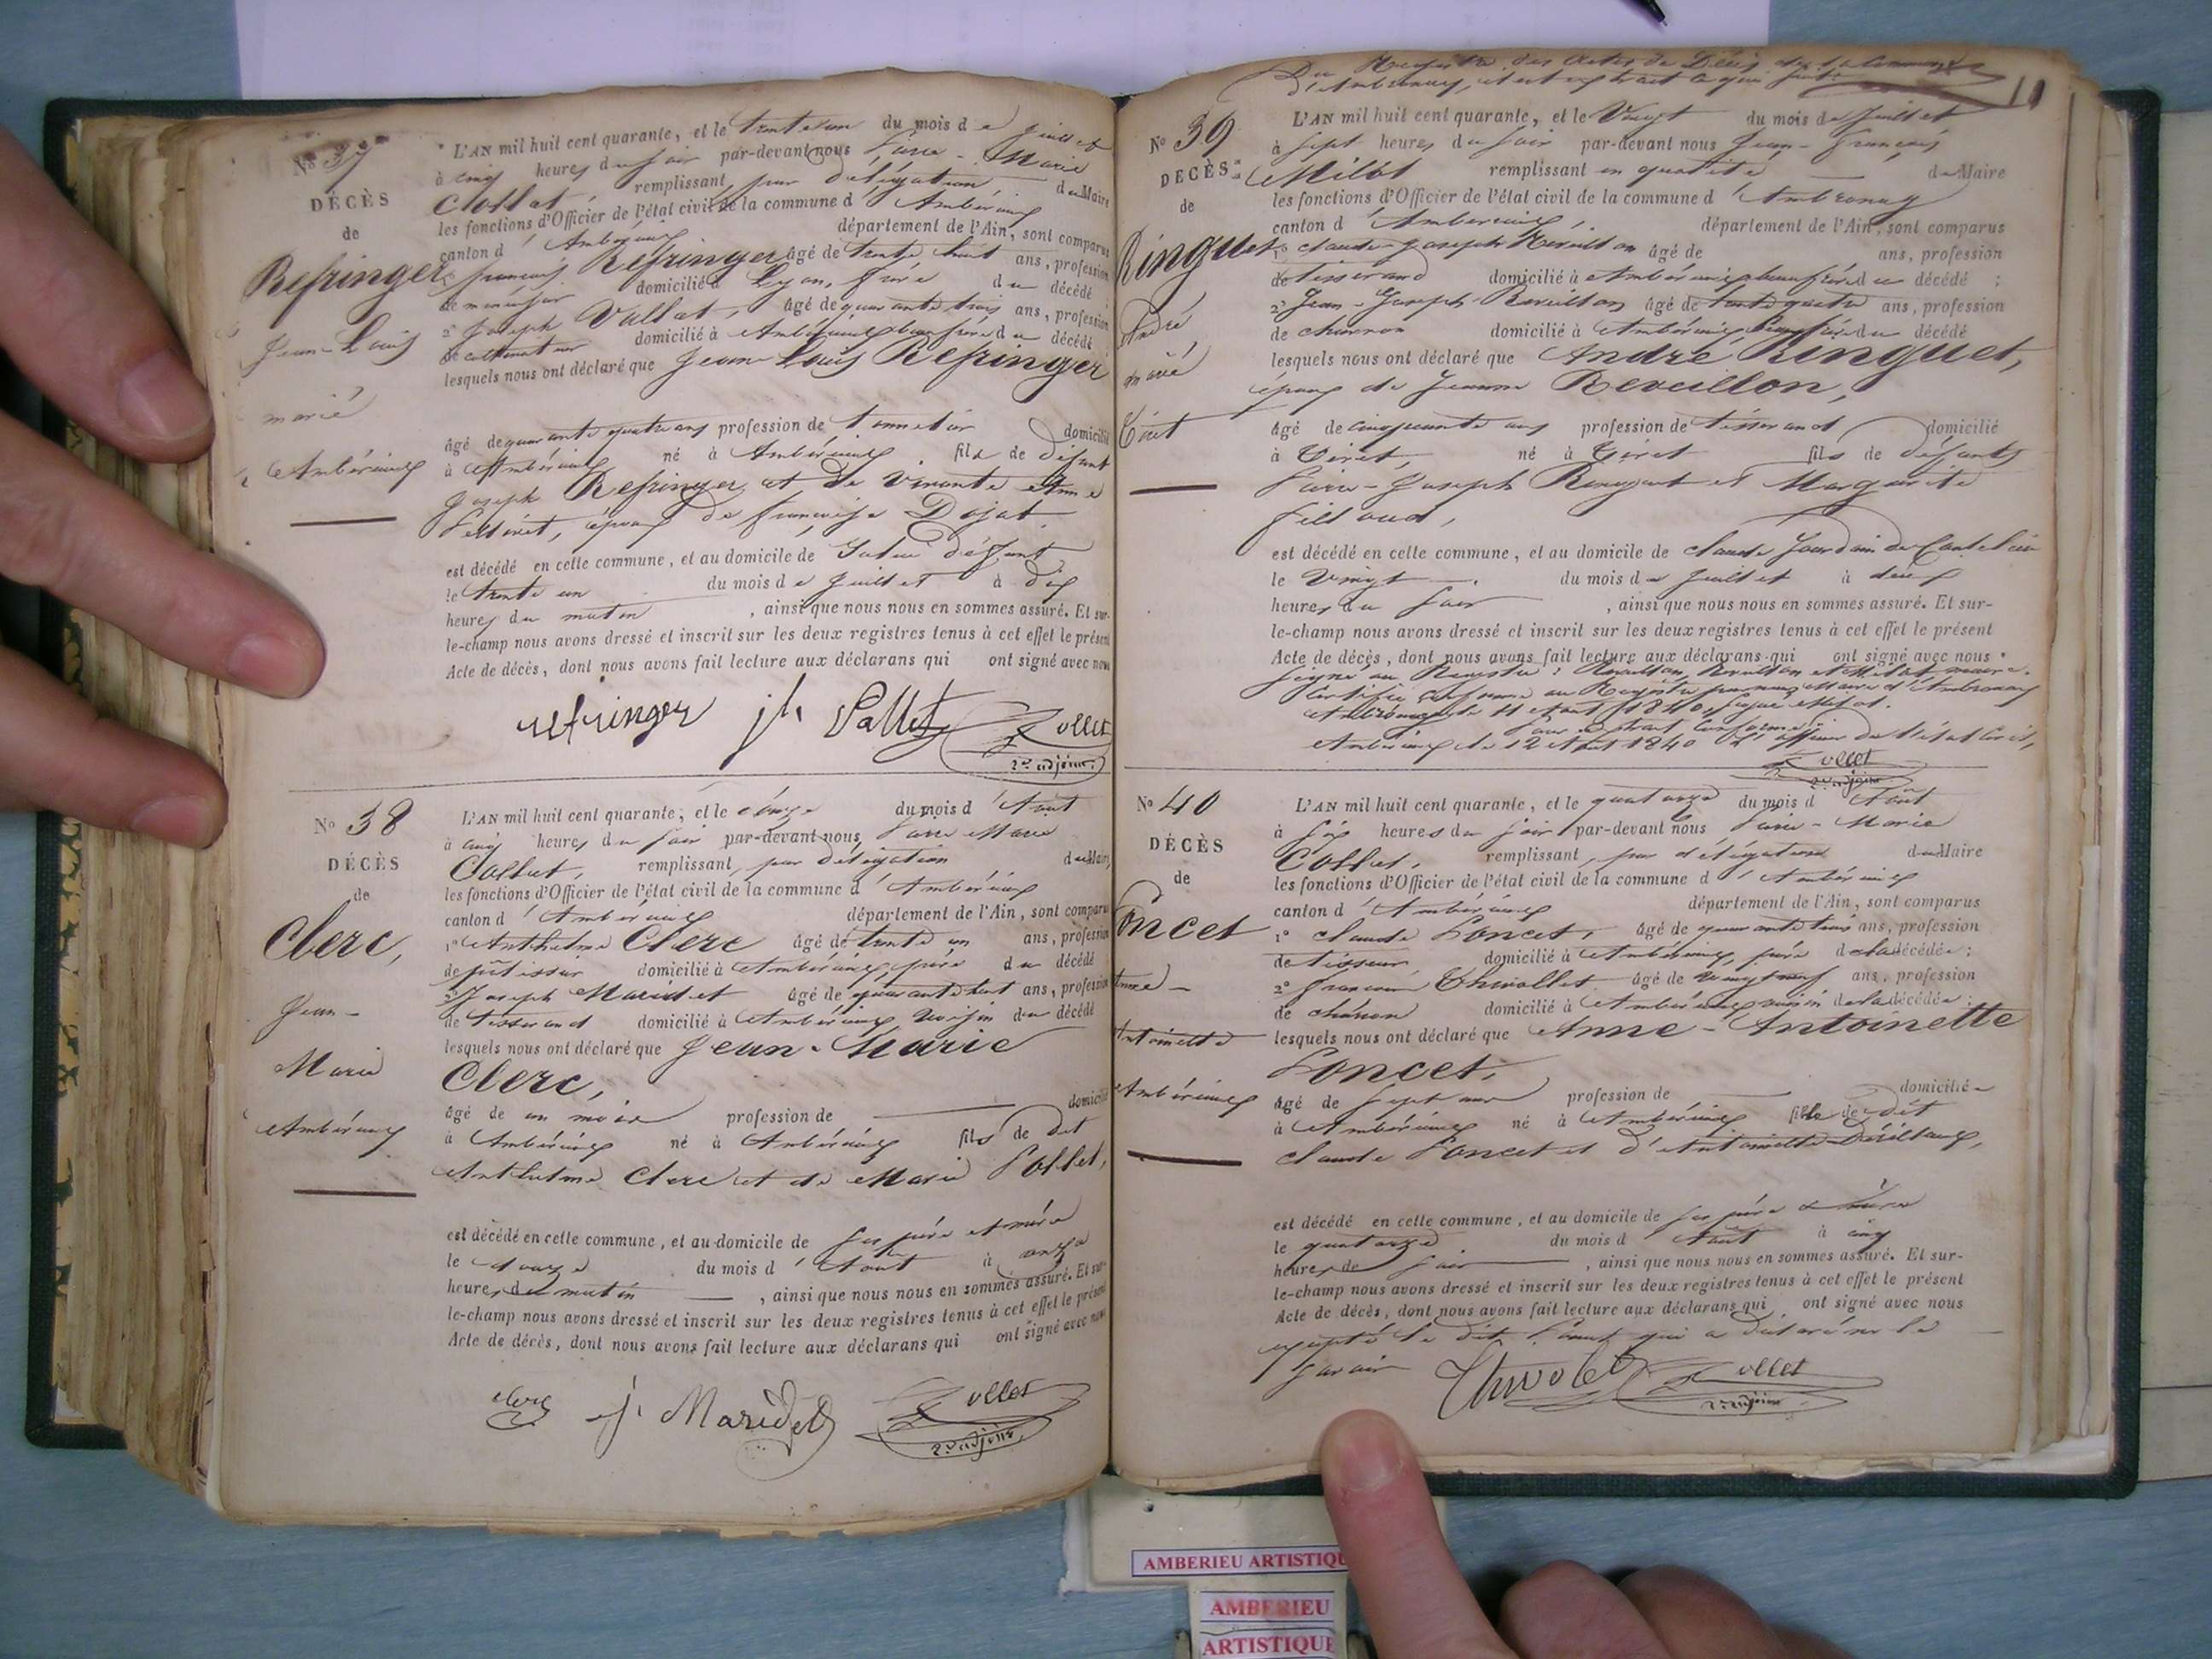 No 37
DÉCÈS
de
Refringer
Jean-Louis
marié
Ambérieux
L'AN mil huit cent quarante, et le trente un du mois de Juillet
à cinq heures du soir par-devant nous Pierre-Marie
Collet, remplissant, par délégation du Maire
les fonctions d'Officier de l'état civil de la commune d'Ambérieux
canton d'Ambérieux département de l'Ain, sont comparus
1° françois Refringer âgé de trente huit ans, profession
de domicilié à Lyon, frère du décédé
2° Joseph Vallet, âgé de quarante trois ans, profession
de cultivateur domicilié à Ambérieux beau frère du décédé
lesquels nous ont déclaré que Jean-Louis Refringer
âgé de quarante quatre ans profession de tonnelier domicilié
à Ambérieux né à Ambérieux fils de défunt
Joseph Refringer et de vivante Anne
époux de françoise Dojat
est décédé en cette commune, et au domicile de défunt
le trente un du mois de Juillet à dix
heures du matin , ainsi que nous nous en sommes assuré. Et sur-
le-champ nous avons dressé et inscrit sur les deux registres tenus à cet effet le présent
Acte de décès, dont nous avons fait lecture aux déclarans qui ont signé avec nous
refringer jh Vallet Collet
2e adjoint
No 38
DÉCÈS
de
Clerc,
Jean-
Marie
Ambérieux
L'AN mil huit cent quarante, et le douze du mois d'Août
à cinq heures du soir par-devant nous, Pierre Marie
Collet, remplissant, par délégation du Maire,
les fonctions d'Officier de l'état civil de la commune d'Ambérieux
canton d'Ambérieux département de l'Ain, sont comparus
1° Anthelme Clerc âgé de trente un ans, profession
de pâtissier domicilié à Ambérieux, père du décédé
2° Joseph Maridet âgé de quarante huit ans, profession
de tisserand domicilié à Ambérieux voisin du décédé
lesquels nous ont déclaré que Jean-Marie
Clerc,
âgé de un mois profession de domicilié
à Ambérieux né à Ambérieux fils de dit
Anthelme Clerc et de Marie Pollet,
est décédé en cette commune, et au domicile de ses père et mère
le douze du mois d'Août à onze
heures du matin , ainsi que nous nous en sommes assuré. Et sur-
le-champ nous avons dressé et inscrit sur les deux registres tenus à cet effet le présent
Acte de décès, dont nous avons fait lecture aux déclarans qui ont signé avec nous
clerc j. Maridet Collet
2e adjoint
Du Registre des Actes de Décès de la Commune
d'Ambronay, il est extrait ce qui suit:
No 39
DÉCÈS
de
Ringuet
André
marié
Tiret
L'AN mil huit cent quarante, et le Vingt du mois de Juillet
à sept heures du soir par-devant nous Jean-François
Millot remplissant en qualité de Maire
les fonctions d'Officier de l'état civil de la commune d'Ambronay
canton d'Ambérieux, département de l'Ain, sont comparus
1° claude-Joseph Reveillon âgé de ans, profession
de tisserand domicilié à Ambérieux beaufrère du décédé ;
2° Jean-Joseph Reveillon âgé de trente quatre ans, profession
de charron domicilié à Ambérieux, beaufrère du décédé
lesquels nous ont déclaré que André Ringuet,
époux de Jeanne Reveillon,
âgé de cinquante ans profession de tisserand domicilié
à Tiret, né à Tiret fils de défunts
Pierre-Joseph Ringuet et Marguerite
Tilloud,
est décédé en cette commune, et au domicile de claude Jourdain de
le Vingt du mois de Juillet à deux
heures du soir , ainsi que nous nous en sommes assuré. Et sur-
le-champ nous avons dressé et inscrit sur les deux registres tenus à cet effet le présent
Acte de décès, dont nous avons fait lecture aux déclarans qui ont signé avec nous.
Signé au Registre: Reveillon, Reveillon et Millot maire.
Certifié conforme au Registre par nous Maire d'Ambronay
Ambronay le 11 Août 1840, signé Millot.
Pour extrait conforme:
Ambérieux le 12 Août 1840 L'officier de l'état civil,
Collet
2e adjoint
No 40
DÉCÈS
de
Poncet
Anne-
Antoinette
Ambérieux
L'AN mil huit cent quarante, et le quatorze du mois d'Août
à six heures du soir par-devant nous Pierre-Marie
Collet, remplissant, par délégation du Maire
les fonctions d'Officier de l'état civil de la commune d'Ambérieux
canton d'Ambérieux département de l'Ain, sont comparus
1° claude Poncet, âgé de quarante trois ans, profession
de tisseur domicilié à Ambérieux, père de la décédée ;
2° françois Thivollet âgé de vingt neuf ans, profession
de charron domicilié à Ambérieux voisin de la décédée ;
lesquels nous ont déclaré que Anne-Antoinette
Poncet,
âgé de sept ans profession de domiciliée
à Ambérieux né à Ambérieux fille de dit
claude Poncet et d'Antoinette
est décédé en cette commune, et au domicile de ses père & mère
le quatorze du mois d'Août à cinq
heures du soir , ainsi que nous nous en sommes assuré. Et sur-
le-champ nous avons dressé et inscrit sur les deux registres tenus à cet effet le présent
Acte de décès, dont nous avons fait lecture aux déclarans qui ont signé avec nous
excepté le dit Poncet qui a déclaré ne le
savoir Thivolet Collet
2e adjoint
AMBERIEU ARTISTIQU
AMBERIEU
ARTISTIQUE